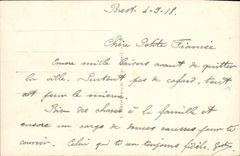 Brest 4-9-18.
Chère Petite Fiancée
Encore mille baisers avant de quitter
la ville. Surtout pas de cafard, tout
est pour le mieux.
Bien des choses à la famille et
encore un de douces caresses pour te
couvrir. Celui qui t'es toujours fidèle.